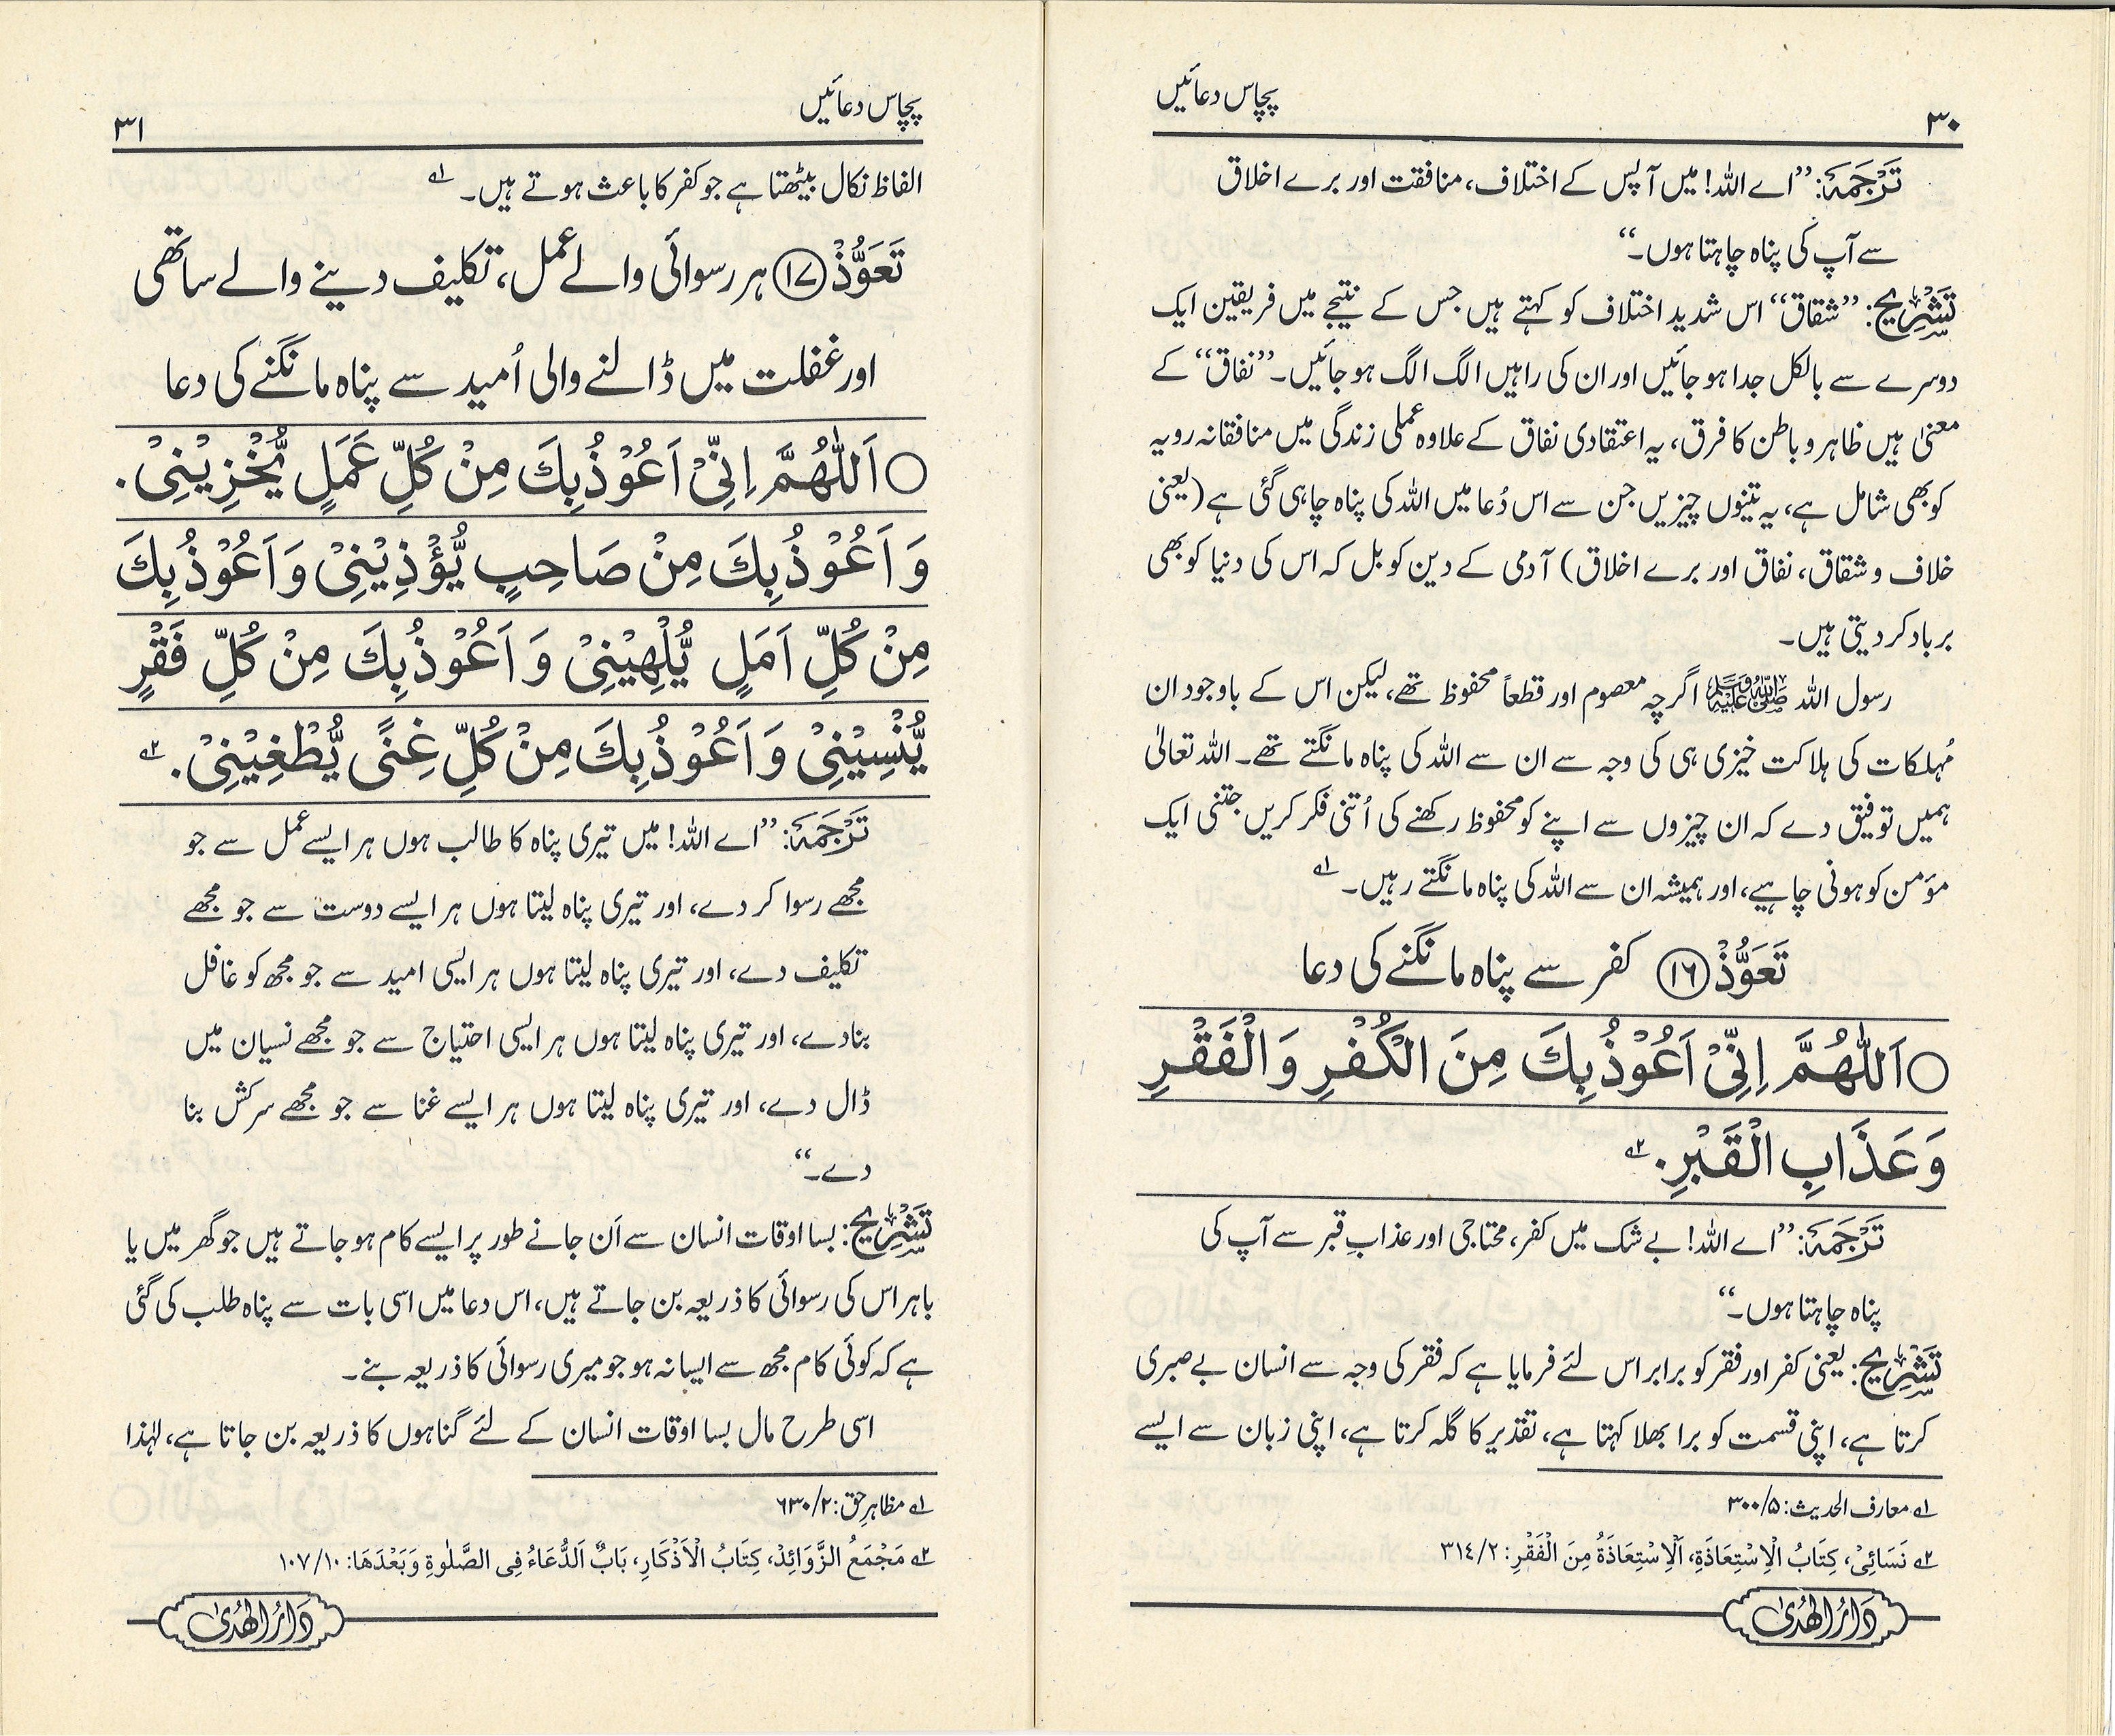 ۳۰
پچاس دعائیں
تَرْجَمَہٗ: ”اے اللہ! میں آپس کے اختلاف، منافقت اور برے اخلاق
سے آپ کی پناہ چاہتا ہوں۔“
تَشْرِیْح: ”شقاق“ اس شدید اختلاف کو کہتے ہیں جس کے نتیجے میں فریقین ایک
دوسرے سے بالکل جدا ہو جائیں اور ان کی راہیں الگ الگ ہو جائیں۔ ”نفاق“ کے
معنیٰ ہیں ظاہر و باطن کا فرق، یہ اعتقادی نفاق کے علاوہ عملی زندگی میں منافقانہ رویہ
کو بھی شامل ہے، یہ تینوں چیزیں جن سے اس دُعا میں اللہ کی پناہ چاہی گئی ہے (یعنی
خلاف و شقاق، نفاق اور برے اخلاق) آدمی کے دین کو بل کہ اس کی دنیا کو بھی
برباد کر دیتی ہیں۔
رسول اللہ ﷺ اگرچہ معصوم اور قطعاً محفوظ تھے، لیکن اس کے باوجود ان
مُہلکات کی ہلاکت خیزی ہی کی وجہ سے ان سے اللہ کی پناہ مانگتے تھے۔ اللہ تعالیٰ
ہمیں توفیق دے کہ ان چیزوں سے اپنے کو محفوظ رکھنے کی اُتنی فکر کریں جتنی ایک
مؤمن کو ہونی چاہیے، اور ہمیشہ ان سے اللہ کی پناہ مانگتے رہیں۔ ۱ے
تَعَوُّذْ ⑯ کفر سے پناہ مانگنے کی دعا
○ اَللّٰهُمَّ اِنِّیْ اَعُوْذُ بِكَ مِنَ الْكُفْرِ وَالْفَقْرِ
وَعَذَابِ الْقَبْرِ. ۲ے
تَرْجَمَہٗ: ”اے اللہ! بے شک میں کفر، محتاجی اور عذابِ قبر سے آپ کی
پناہ چاہتا ہوں۔“
تَشْرِیْح: یعنی کفر اور فقر کو برابر اس لئے فرمایا ہے کہ فقر کی وجہ سے انسان بے صبری
کرتا ہے، اپنی قسمت کو برا بھلا کہتا ہے، تقدیر کا گلہ کرتا ہے، اپنی زبان سے ایسے
۱ے معارف الحدیث: ۳۰۰/۵
۲ے نَسَائِیْ، كِتَابُ الْاِسْتِعَاذَةِ، اَلْاِسْتِعَاذَةُ مِنَ الْفَقْرِ: ۳۱٤/۲
دَارُالْهُدٰی
پچاس دعائیں
۳۱
الفاظ نکال بیٹھتا ہے جو کفر کا باعث ہوتے ہیں۔ ۱ے
تَعَوُّذْ ⑰ ہر رسوائی والے عمل، تکلیف دینے والے ساتھی
اور غفلت میں ڈالنے والی اُمید سے پناہ مانگنے کی دعا
○ اَللّٰهُمَّ اِنِّیْ اَعُوْذُ بِكَ مِنْ كُلِّ عَمَلٍ یُّخْزِیْنِیْ.
وَ اَعُوْذُ بِكَ مِنْ صَاحِبٍ یُّؤْذِیْنِیْ وَ اَعُوْذُ بِكَ
مِنْ كُلِّ اَمَلٍ یُّلْهِیْنِیْ وَ اَعُوْذُ بِكَ مِنْ كُلِّ فَقْرٍ
یُّنْسِیْنِیْ وَ اَعُوْذُ بِكَ مِنْ كُلِّ غِنًی یُّطْغِیْنِیْ. ۲ے
تَرْجَمَہٗ: ”اے اللہ! میں تیری پناہ کا طالب ہوں ہر ایسے عمل سے جو
مجھے رسوا کر دے، اور تیری پناہ لیتا ہوں ہر ایسے دوست سے جو مجھے
تکلیف دے، اور تیری پناہ لیتا ہوں ہر ایسی امید سے جو مجھ کو غافل
بنادے، اور تیری پناہ لیتا ہوں ہر ایسی احتیاج سے جو مجھے نسیان میں
ڈال دے، اور تیری پناہ لیتا ہوں ہر ایسے غنا سے جو مجھے سرکش بنا
دے۔“
تَشْرِیْح: بسا اوقات انسان سے اَن جانے طور پر ایسے کام ہو جاتے ہیں جو گھر میں یا
باہر اس کی رسوائی کا ذریعہ بن جاتے ہیں، اس دعا میں اسی بات سے پناہ طلب کی گئی
ہے کہ کوئی کام مجھ سے ایسا نہ ہو جو میری رسوائی کا ذریعہ بنے۔
اسی طرح مال بسا اوقات انسان کے لئے گناہوں کا ذریعہ بن جاتا ہے، لہٰذا
۱ے مظاہرِ حق: ۶۳۰/۲
۲ے مَجْمَعُ الزَّوَائِدْ، كِتَابُ الْاَذْكَارِ، بَابٌ اَلدُّعَاءُ فِی الصَّلٰوةِ وَبَعْدَهَا: ۱۰۷/۱۰
دَارُالْهُدٰی